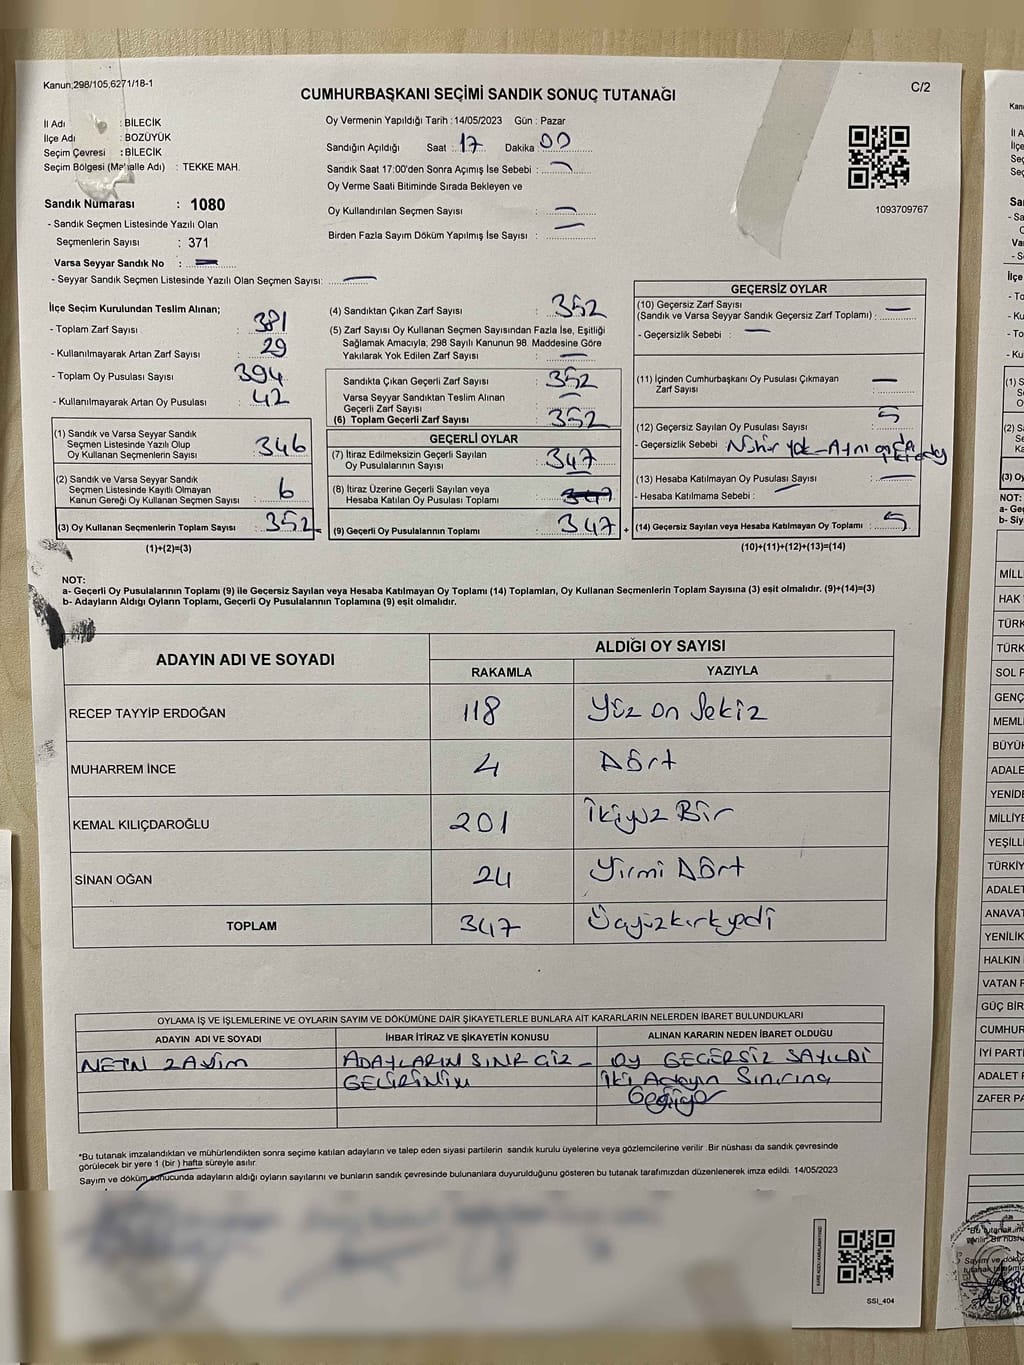 Kanun;298/105,6271/18-1
C/2
CUMHURBAŞKANI SEÇİMİ SANDIK SONUÇ TUTANAĞI
İl Adı : BİLECİK
İlçe Adı : BOZÜYÜK
Seçim Çevresi : BİLECİK
Seçim Bölgesi (Mahalle Adı) : TEKKE MAH.
Oy Vermenin Yapıldığı Tarih : 14/05/2023 Gün : Pazar
Sandığın Açıldığı Saat : 17 Dakika 00
Sandık Saat 17:00'den Sonra Açımış İse Sebebi : —
Oy Verme Saati Bitiminde Sırada Bekleyen ve
Oy Kullandırılan Seçmen Sayısı : —
Birden Fazla Sayım Döküm Yapılmış İse Sayısı : —
1093709767
Sandık Numarası : 1080
- Sandık Seçmen Listesinde Yazılı Olan
Seçmenlerin Sayısı : 371
Varsa Seyyar Sandık No : —
- Seyyar Sandık Seçmen Listesinde Yazılı Olan Seçmen Sayısı: —
İlçe Seçim Kurulundan Teslim Alınan;
- Toplam Zarf Sayısı : 381
- Kullanılmayarak Artan Zarf Sayısı : 29
- Toplam Oy Pusulası Sayısı : 394
- Kullanılmayarak Artan Oy Pusulası : 42
(1) Sandık ve Varsa Seyyar Sandık
Seçmen Listesinde Yazılı Olup
Oy Kullanan Seçmenlerin Sayısı : 346
(2) Sandık ve Varsa Seyyar Sandık
Seçmen Listesinde Kayıtlı Olmayan
Kanun Gereği Oy Kullanan Seçmen Sayısı : 6
(3) Oy Kullanan Seçmenlerin Toplam Sayısı : 352
(1)+(2)=(3)
(4) Sandıktan Çıkan Zarf Sayısı : 352
(5) Zarf Sayısı Oy Kullanan Seçmen Sayısından Fazla İse, Eşitliği
Sağlamak Amacıyla; 298 Sayılı Kanunun 98. Maddesine Göre
Yakılarak Yok Edilen Zarf Sayısı : —
Sandıkta Çıkan Geçerli Zarf Sayısı : 352
Varsa Seyyar Sandıktan Teslim Alınan
Geçerli Zarf Sayısı : —
(6) Toplam Geçerli Zarf Sayısı : 352
GEÇERLİ OYLAR
(7) İtiraz Edilmeksizin Geçerli Sayılan
Oy Pusulalarının Sayısı : 347
(8) İtiraz Üzerine Geçerli Sayılan veya
Hesaba Katılan Oy Pusulası Toplamı : 347
(9) Geçerli Oy Pusulalarının Toplamı : 347
GEÇERSİZ OYLAR
(10) Geçersiz Zarf Sayısı
(Sandık ve Varsa Seyyar Sandık Geçersiz Zarf Toplamı) : —
- Geçersizlik Sebebi : —
(11) İçinden Cumhurbaşkanı Oy Pusulası Çıkmayan
Zarf Sayısı : —
(12) Geçersiz Sayılan Oy Pusulası Sayısı : 5
- Geçersizlik Sebebi :
(13) Hesaba Katılmayan Oy Pusulası Sayısı : —
- Hesaba Katılmama Sebebi : —
(14) Geçersiz Sayılan veya Hesaba Katılmayan Oy Toplamı : 5
(10)+(11)+(12)+(13)=(14)
NOT:
a- Geçerli Oy Pusulalarının Toplamı (9) ile Geçersiz Sayılan veya Hesaba Katılmayan Oy Toplamı (14) Toplamları, Oy Kullanan Seçmenlerin Toplam Sayısına (3) eşit olmalıdır. (9)+(14)=(3)
b- Adayların Aldığı Oyların Toplamı, Geçerli Oy Pusulalarının Toplamına (9) eşit olmalıdır.
ADAYIN ADI VE SOYADI
ALDIĞI OY SAYISI
RAKAMLA YAZIYLA
RECEP TAYYİP ERDOĞAN 118 Yüz on Sekiz
MUHARREM İNCE 4 Dört
KEMAL KILIÇDAROĞLU 201 İkiyüz Bir
SİNAN OĞAN 24 Yirmi Dört
TOPLAM 347 Üçyüzkırkyedi
OYLAMA İŞ VE İŞLEMLERİNE VE OYLARIN SAYIM VE DÖKÜMÜNE DAİR ŞİKAYETLERLE BUNLARA AİT KARARLARIN NELERDEN İBARET BULUNDUKLARI
ADAYIN ADI VE SOYADI
İHBAR İTİRAZ VE ŞİKAYETİN KONUSU
ALINAN KARARIN NEDEN İBARET OLDUĞU
ADAYLARIN SINIR ÇİZ-
OY GEÇERSİZ SAYILDI
İki Adayın Sınırına
*Bu tutanak imzalandıktan ve mühürlendikten sonra seçime katılan adayların ve talep eden siyasi partilerin sandık kurulu üyelerine veya gözlemcilerine verilir .Bir nüshası da sandık çevresinde
görülecek bir yere 1 (bir ) hafta süreyle asılır.
Sayım ve döküm sonucunda adayların aldığı oyların sayılarını ve bunların sandık çevresinde bulunanlara duyurulduğunu gösteren bu tutanak tarafımızdan düzenlenerek imza edildi. 14/05/2023
SSI_404
MİLLİ
HAK
TÜRK
TÜRK
SOL F
GENÇ
MEML
BÜYÜK
ADALE
YENİDE
MİLLİYE
YEŞİLL
TÜRKİY
ADALET
ANAVAT
YENİLİK
HALKIN
VATAN F
GÜÇ BİR
CUMHUR
İYİ PARTİ
ADALET F
ZAFER PA